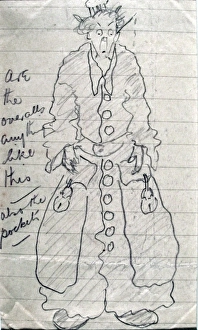 Are
the
overalls
anything
like
this
also the
pockets